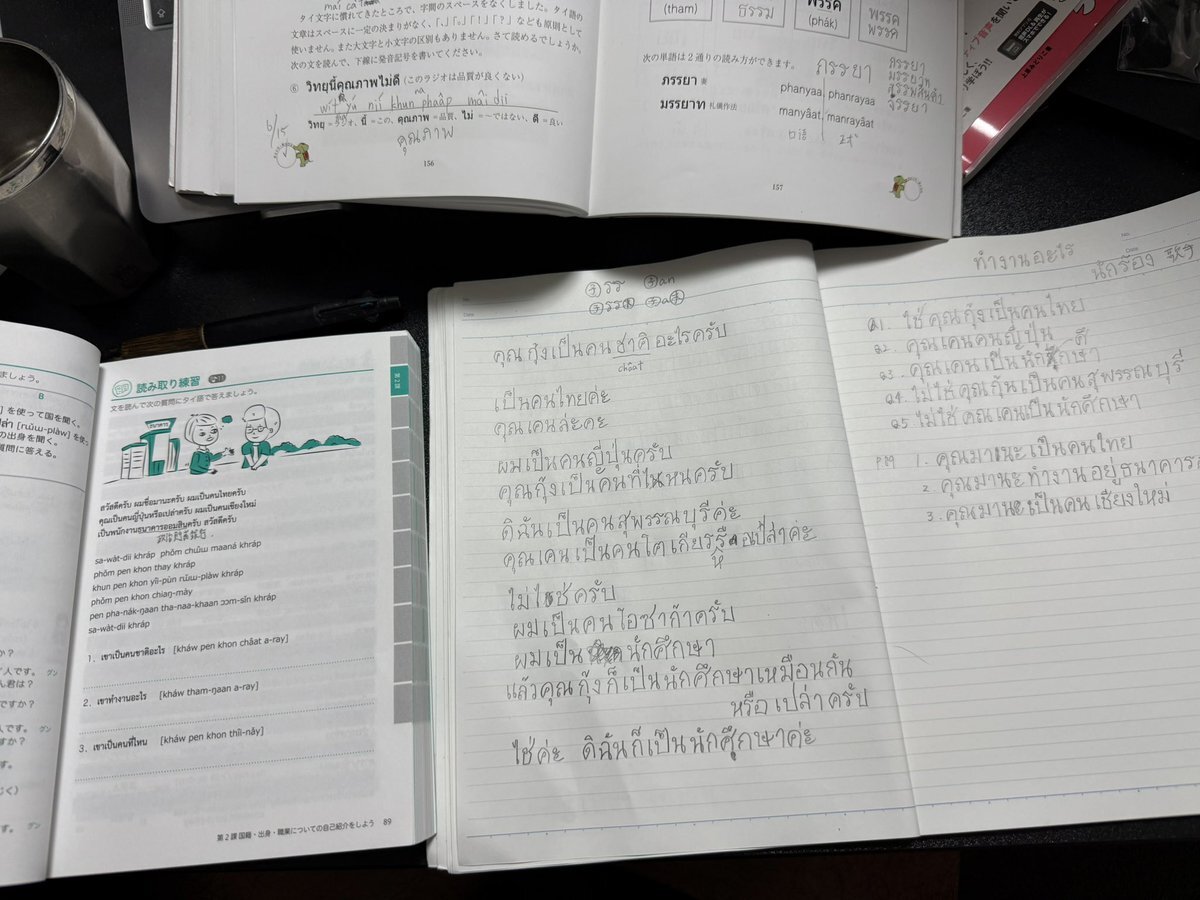 タイ文字に慣れてきたところで、字間のスペースをなくしました。タイ語の
文章はスペースに一定の決まりがなく、「、」「。」「！」「？」なども原則として
使いません。また大文字と小文字の区別もありません。さて読めるでしょうか。
次の文を読んで、下線に発音記号を書いてください。
⑥ วิทยุนี้คุณภาพไม่ดี (このラジオは品質が良くない)
wít yú níi khun phâap mâi dii
วิทยุ = ラジオ、นี้ = この、คุณภาพ = 品質、ไม่ = ～ではない、ดี = 良い
6/15
คุณภาพ
156
(tham)
ธรรม
พรรค
(phák)
พรรค
พรรค
次の単語は2通りの読み方ができます。
ภรรยา
ภรรยา 妻
phanyaa, phanrayaa
มรรยาท 礼儀作法
manyâat, manrayâat
口語
ภรรยา
มรรยาท
จรรยา
157
ましょう。
B
] を使って国を聞く。
[rɯ̌ɯ-plàw] を使っ
の出身を聞く。
質問に答える。
読み取り練習
文を読んで次の質問にタイ語で答えましょう。
第2課
ธนาคาร
สวัสดีครับ ผมชื่อมานะครับ ผมเป็นคนไทยครับ
คุณเป็นคนญี่ปุ่นหรือเปล่าครับ ผมเป็นคนเชียงใหม่
เป็นพนักงานธนาคารออมสินครับ สวัสดีครับ
sa-wàt-dii khráp phǒm chɯ̂ɯ maaná khráp
phǒm pen khon thay khráp
khun pen khon yîi-pùn rɯ̌ɯ-plàw khráp
phǒm pen khon chiaŋ-mày
pen pha-nák-ŋaan tha-naa-khaan ɔɔm-sǐn khráp
sa-wàt-dii khráp
1. เขาเป็นคนชาติอะไร [kháw pen khon châat a-ray]
2. เขาทำงานอะไร [kháw tham-ŋaan a-ray]
3. เขาเป็นคนที่ไหน [kháw pen khon thîi-nǎy]
第2課 国籍・出身・職業についての自己紹介をしよう 89
No.
Date
子 รร 子 an
子 รร 末 子 a 末
คุณกุ้งเป็นคนชาติอะไรครับ
châat
เป็นคนไทยค่ะ
คุณเคนล่ะคะ
ผมเป็นคนญี่ปุ่นครับ
คุณกุ้งเป็นคนที่ไหนครับ
ดิฉันเป็นคนสุพรรณบุรีค่ะ
คุณเคนเป็นคนโตเกียวรึเปล่าค่ะ
ไม่ใช่ครับ
ผมเป็นคนโอซาก้าครับ
ผมเป็นนักศึกษา
แล้วคุณกุ้งก็เป็นนักศึกษาเหมือนกัน
หรือเปล่าครับ
ใช่ค่ะ ดิฉันก็เป็นนักศึกษาค่ะ
No.
Date
ทำงานอะไร
นักร้อง 歌手
Q1. ใช่ คุณกุ้งเป็นคนไทย
Q2. คุณเคนคนญี่ปุ่น
Q3. คุณเคนเป็นนักศึกษา
Q4. ไม่ใช่ คุณกุ้นเป็นคนสุพรรณบุรี
Q5. ไม่ใช่ คุณเคนเป็นนักศึกษา
P89 1. คุณมานะเป็นคนไทย
2. คุณมานะทำงานอยู่ธนาคาร
3. คุณมานะเป็นคนเชียงใหม่